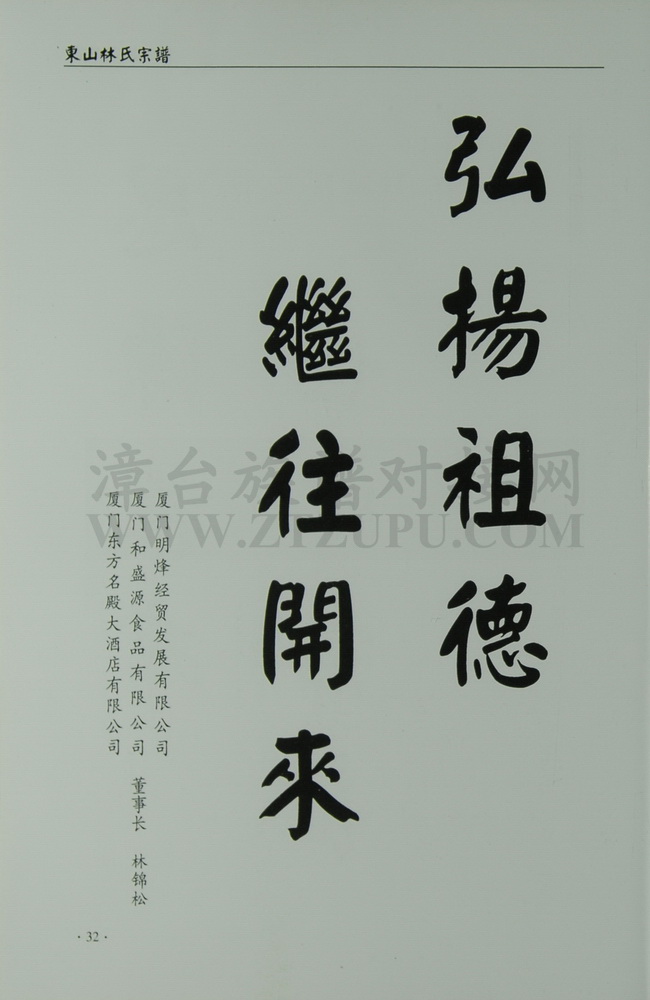 東山林氏宗譜
弘揚祖德
繼往開來
厦门明烽经贸发展有限公司
厦门和盛源食品有限公司 董事长 林锦松
厦门东方名殿大酒店有限公司
漳台族谱对接网
WWW.ZTZUPU.COM
·32·